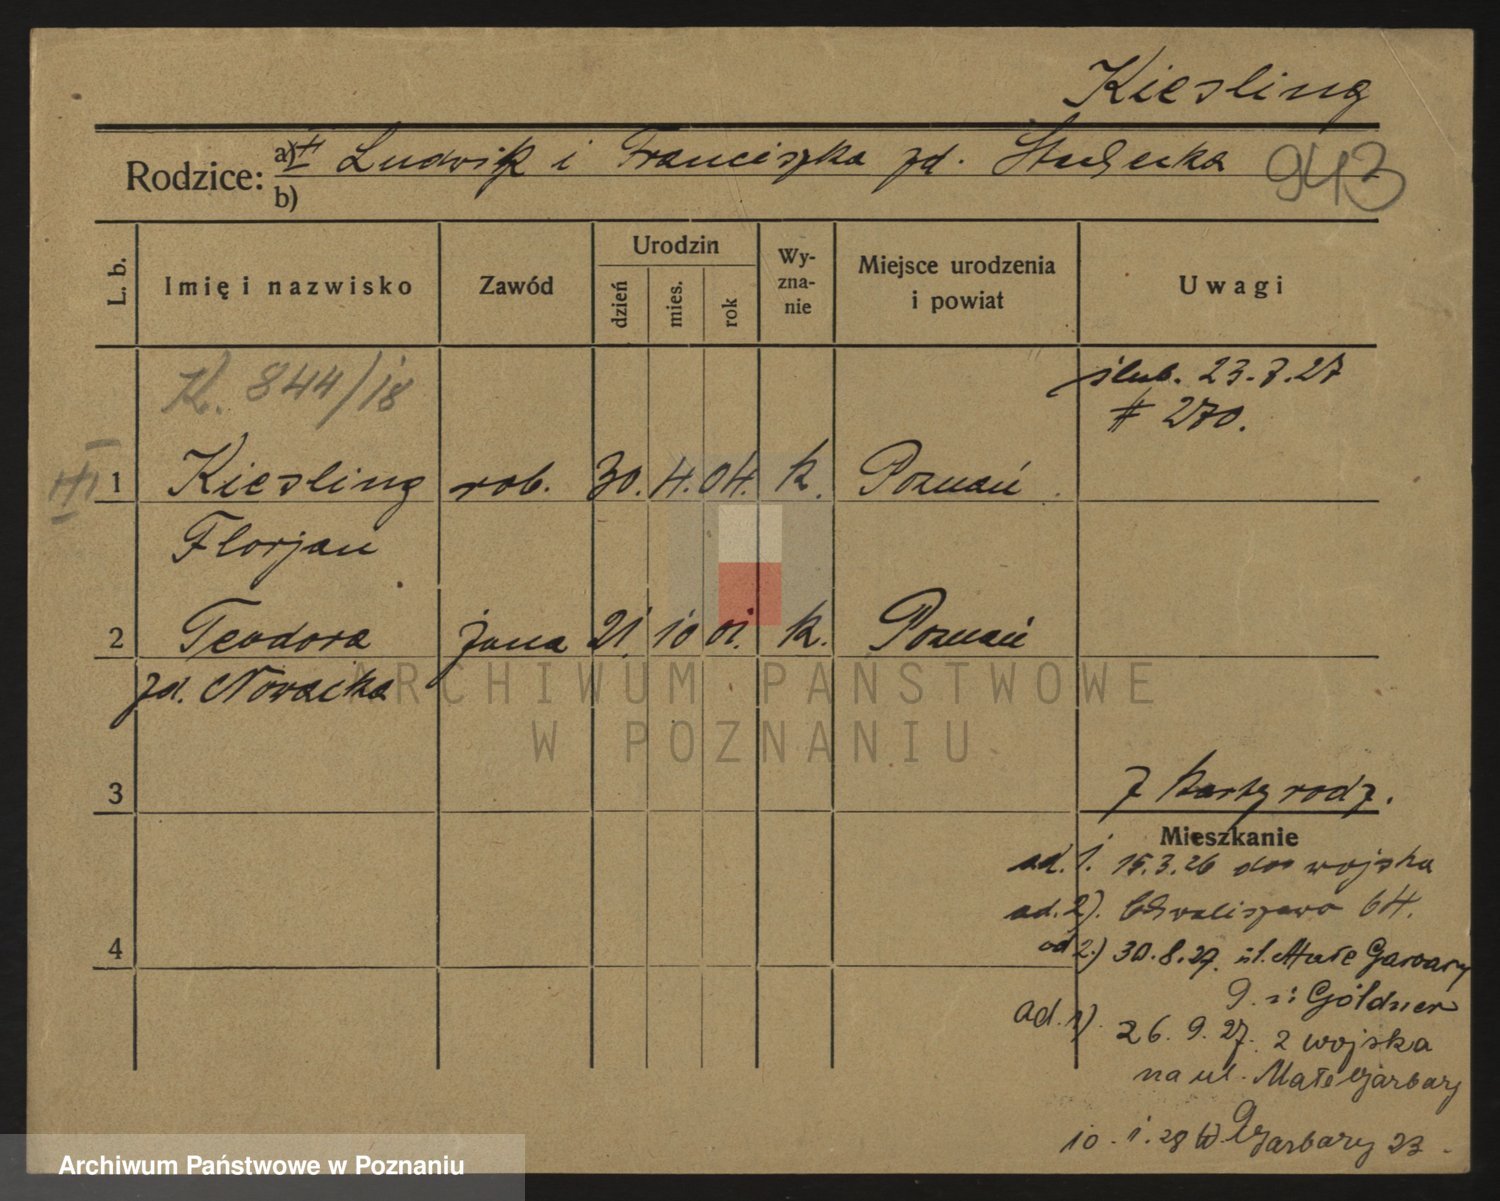 Kiesling
Rodzice: a) Ludwik i Franciszka zd.
943
b)
L. b.
Imię i nazwisko
Zawód
Urodzin
dzień
mies.
rok
Wy-
zna-
nie
Miejsce urodzenia
i powiat
Uwagi
K. 844/18
ślub. 23.7.27
# 270.
1 Kiesling rob. 30. 4. 04. k. Poznań
Florjan
2 Teodora żona 21. 10 01. k. Poznań
zd. Nowacka
ARCHIWUM PAŃSTWOWE
W POZNANIU
3
z karty rodz.
Mieszkanie
ad. 1. 15.3.26 do wojska
ad. 2). Chwaliszewo 64.
4
ad 2.) 30.8.27. ul. Małe Garbary
9. u: Göldner
ad. 1). 26. 9. 27. z wojska
na ul. Małe Garbary
10. 1. 28 W. Garbary 23.
Archiwum Państwowe w Poznaniu